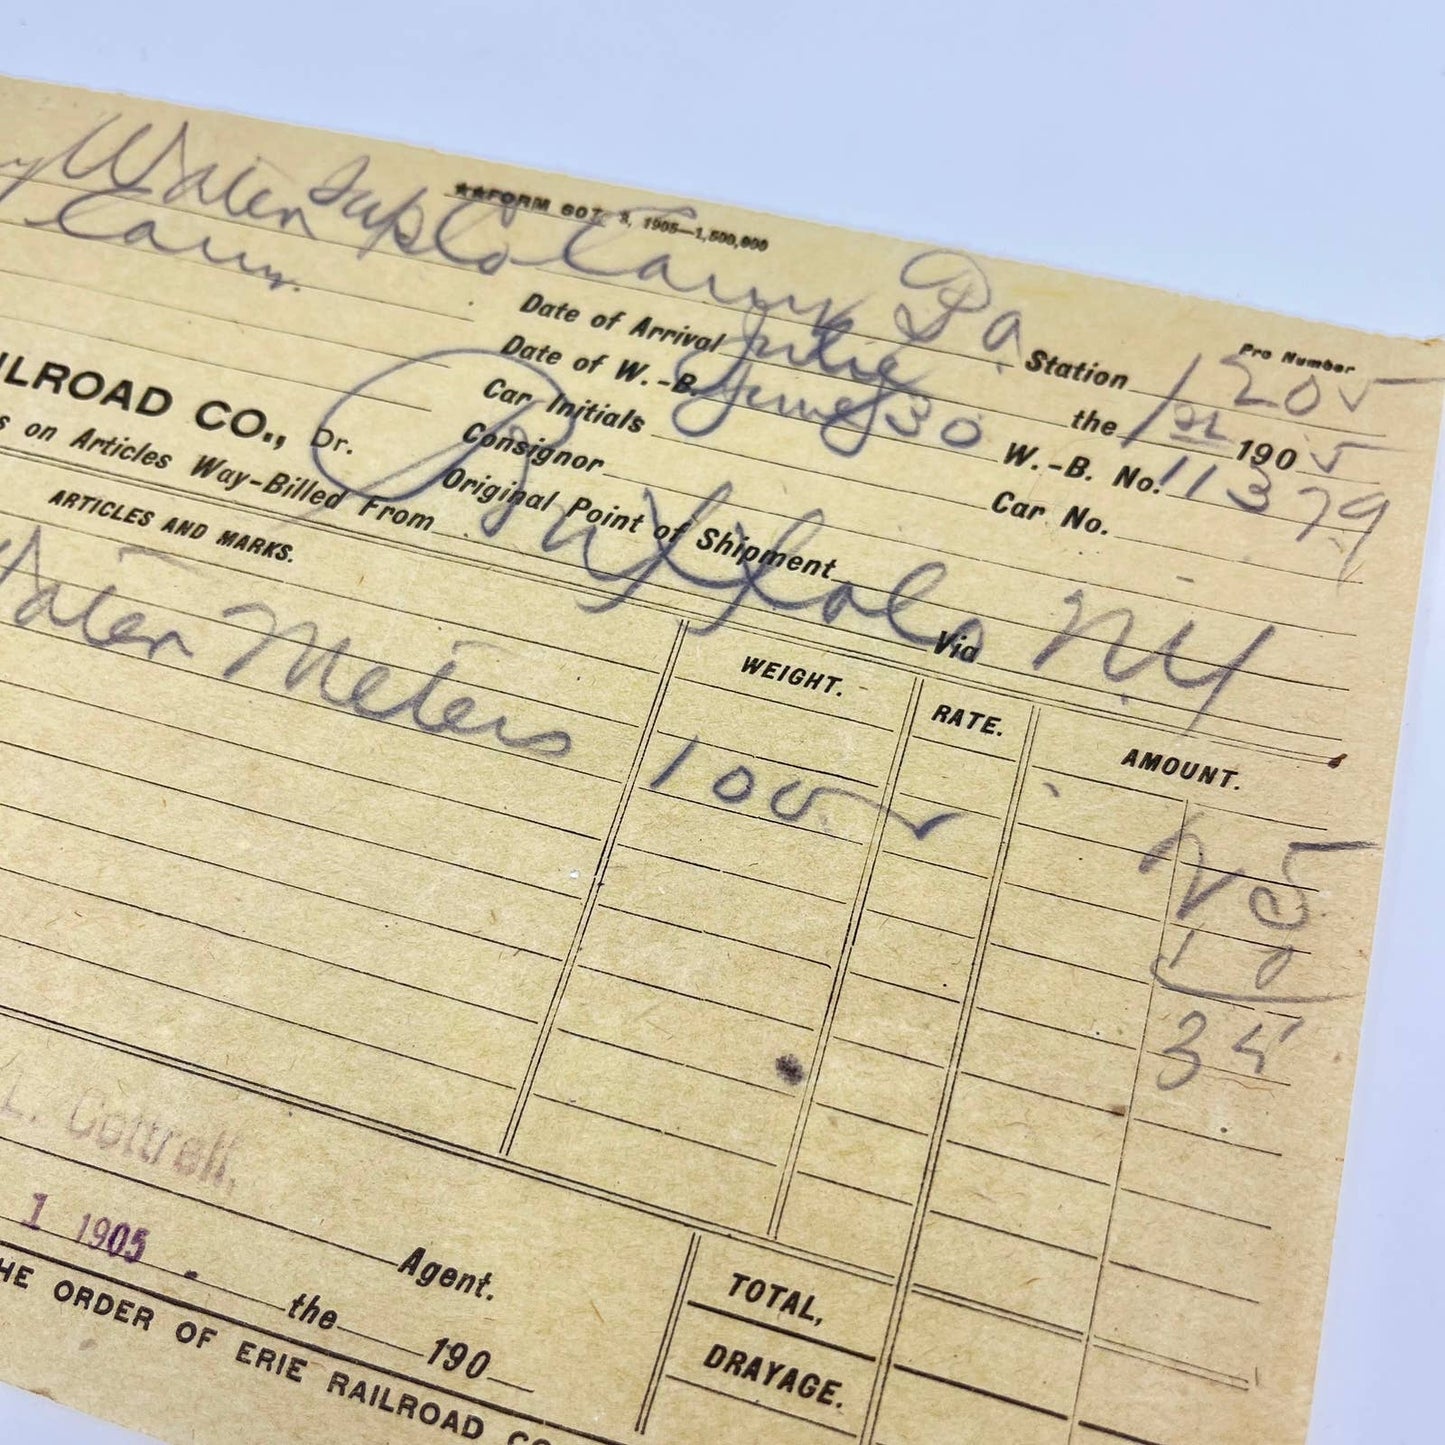 Water Sup Co Corry Pa.
Corry.
★★FORM 607. 3, 1905—1,500,000
Pro Number
Station 1205
Date of Arrival Julie the 1st 1905
Date of W.-B. June 30 W.-B. No. 11379
Car Initials Car No.
Consignor
Original Point of Shipment
ILROAD CO., Dr.
s on Articles Way-Billed From Buffalo NY Via
ARTICLES AND MARKS. WEIGHT. RATE. AMOUNT.
Water Meters 100 25
10
35
L. Cottrell,
Agent.
1 1905
the 190
TOTAL,
DRAYAGE.
HE ORDER OF ERIE RAILROAD CO